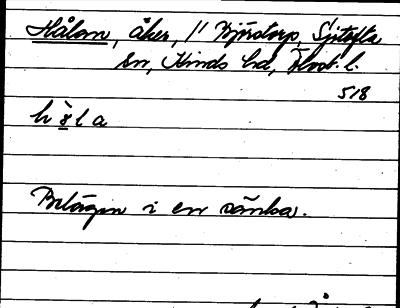 Hålan, åker, 11 Björstorp, Sjötofta
sn, Kinds hd, Älvsb. l.
518
hòla
Belägen i en sänka.